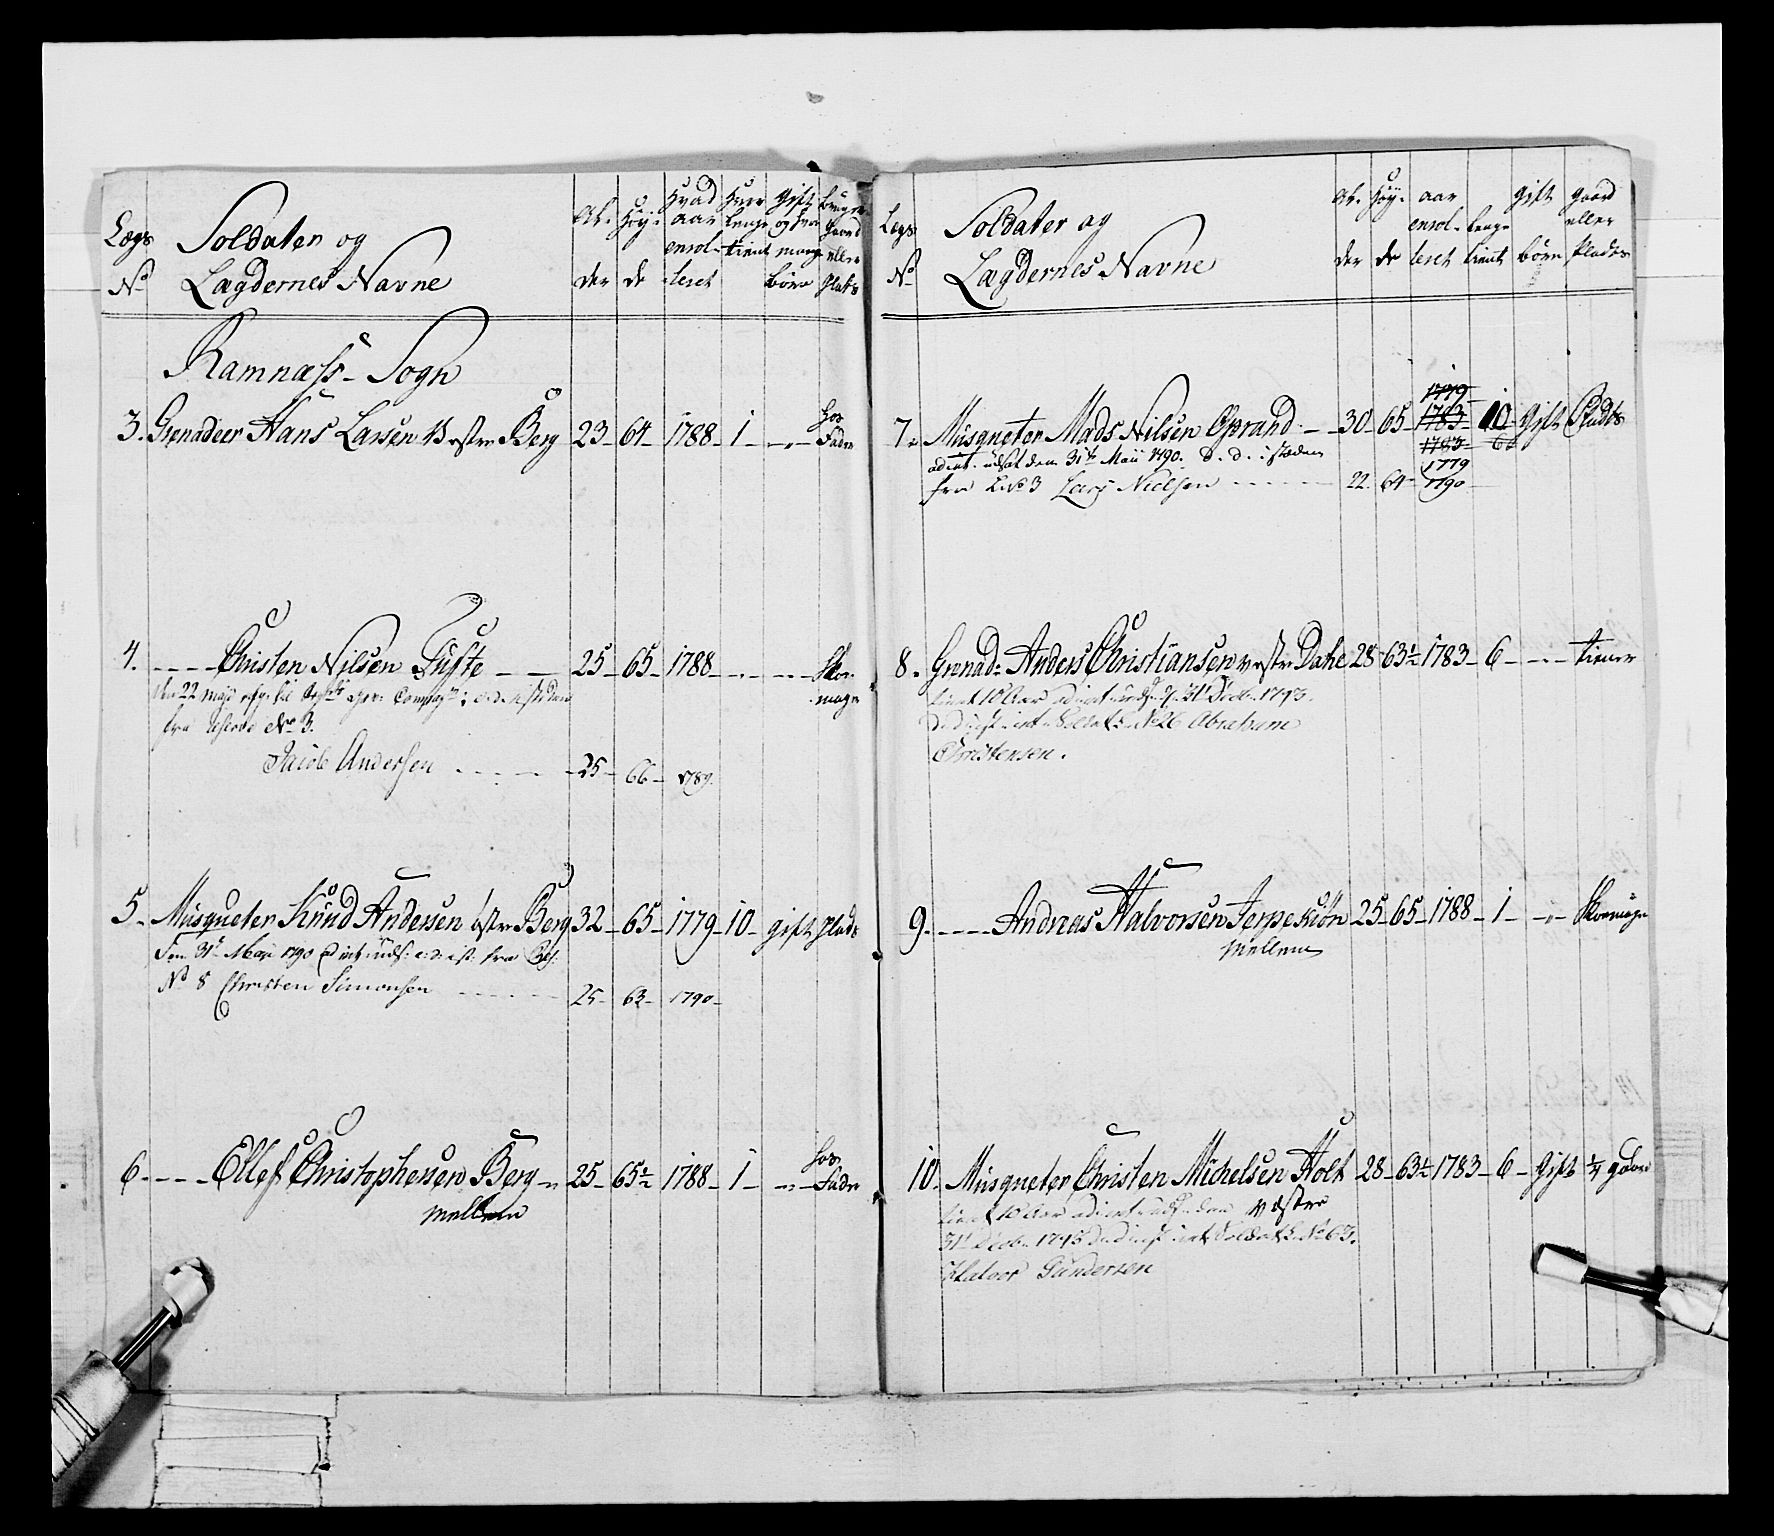 Lægs No
Soldater og
Lægdernes Navne
Al-der
Höy-de
Hvad aar enrol-leret
Hvor lenge tient
Gift og hvor mange börn
bruger gaard eller Plads
Ramnæss Sogn
3. Grenadeer Hans Larsen Vestre Berg 23 - 64 - 1788 - 1 - hos Fader
4. Christen Nilsen Tufte 25 - 65 - 1788 - Skoe-mager
Den 22 Maj
fra No 3.
Jacob Andersen 25 - 66 - 1789
5. Musqueter Knud Andersen østre Berg 32 - 65 - 1779 - 10 - gift plads
Den 31te Maji 1790
No 8 Christen Simonsen 25 - 63 - 1790
6. Ellef Christophersen Berg 25 - 65½ - 1788 - 1 - hos Fader
mellem
Lægs No
Soldater og
Lægdernes Navne
Al-der
Höy-de
aar enrol-leret
lenge tient
gift börn
gaard eller Plads
1779
7. Musqueter Mads Nilsen Oprand 30 - 65 - 1783 - 10 - Gift Plads
1783
1779
udsat den 31te Maii 1790
fra No 3 Lars Nielsen 22 - 64 - 1790
8. Grenad: Anders Christiansen vestre Dahl 28 - 63½ - 1783 - 6 - tiener
tient 10 Aar 31te Decb. 1793.
No 26 Abraham
Christensen.
9. Andreas Halvorsen Jerpekiøn 25 - 65 - 1788 - 1 - Skoemager
mellem
10. Musqueter Christen Michelsen Holt 28 - 63½ - 1783 - 6 - Gift ¼ gaard
tient 10 Aar den vestre
31te Decb. 1793 No 63.
Halvor Gundersen